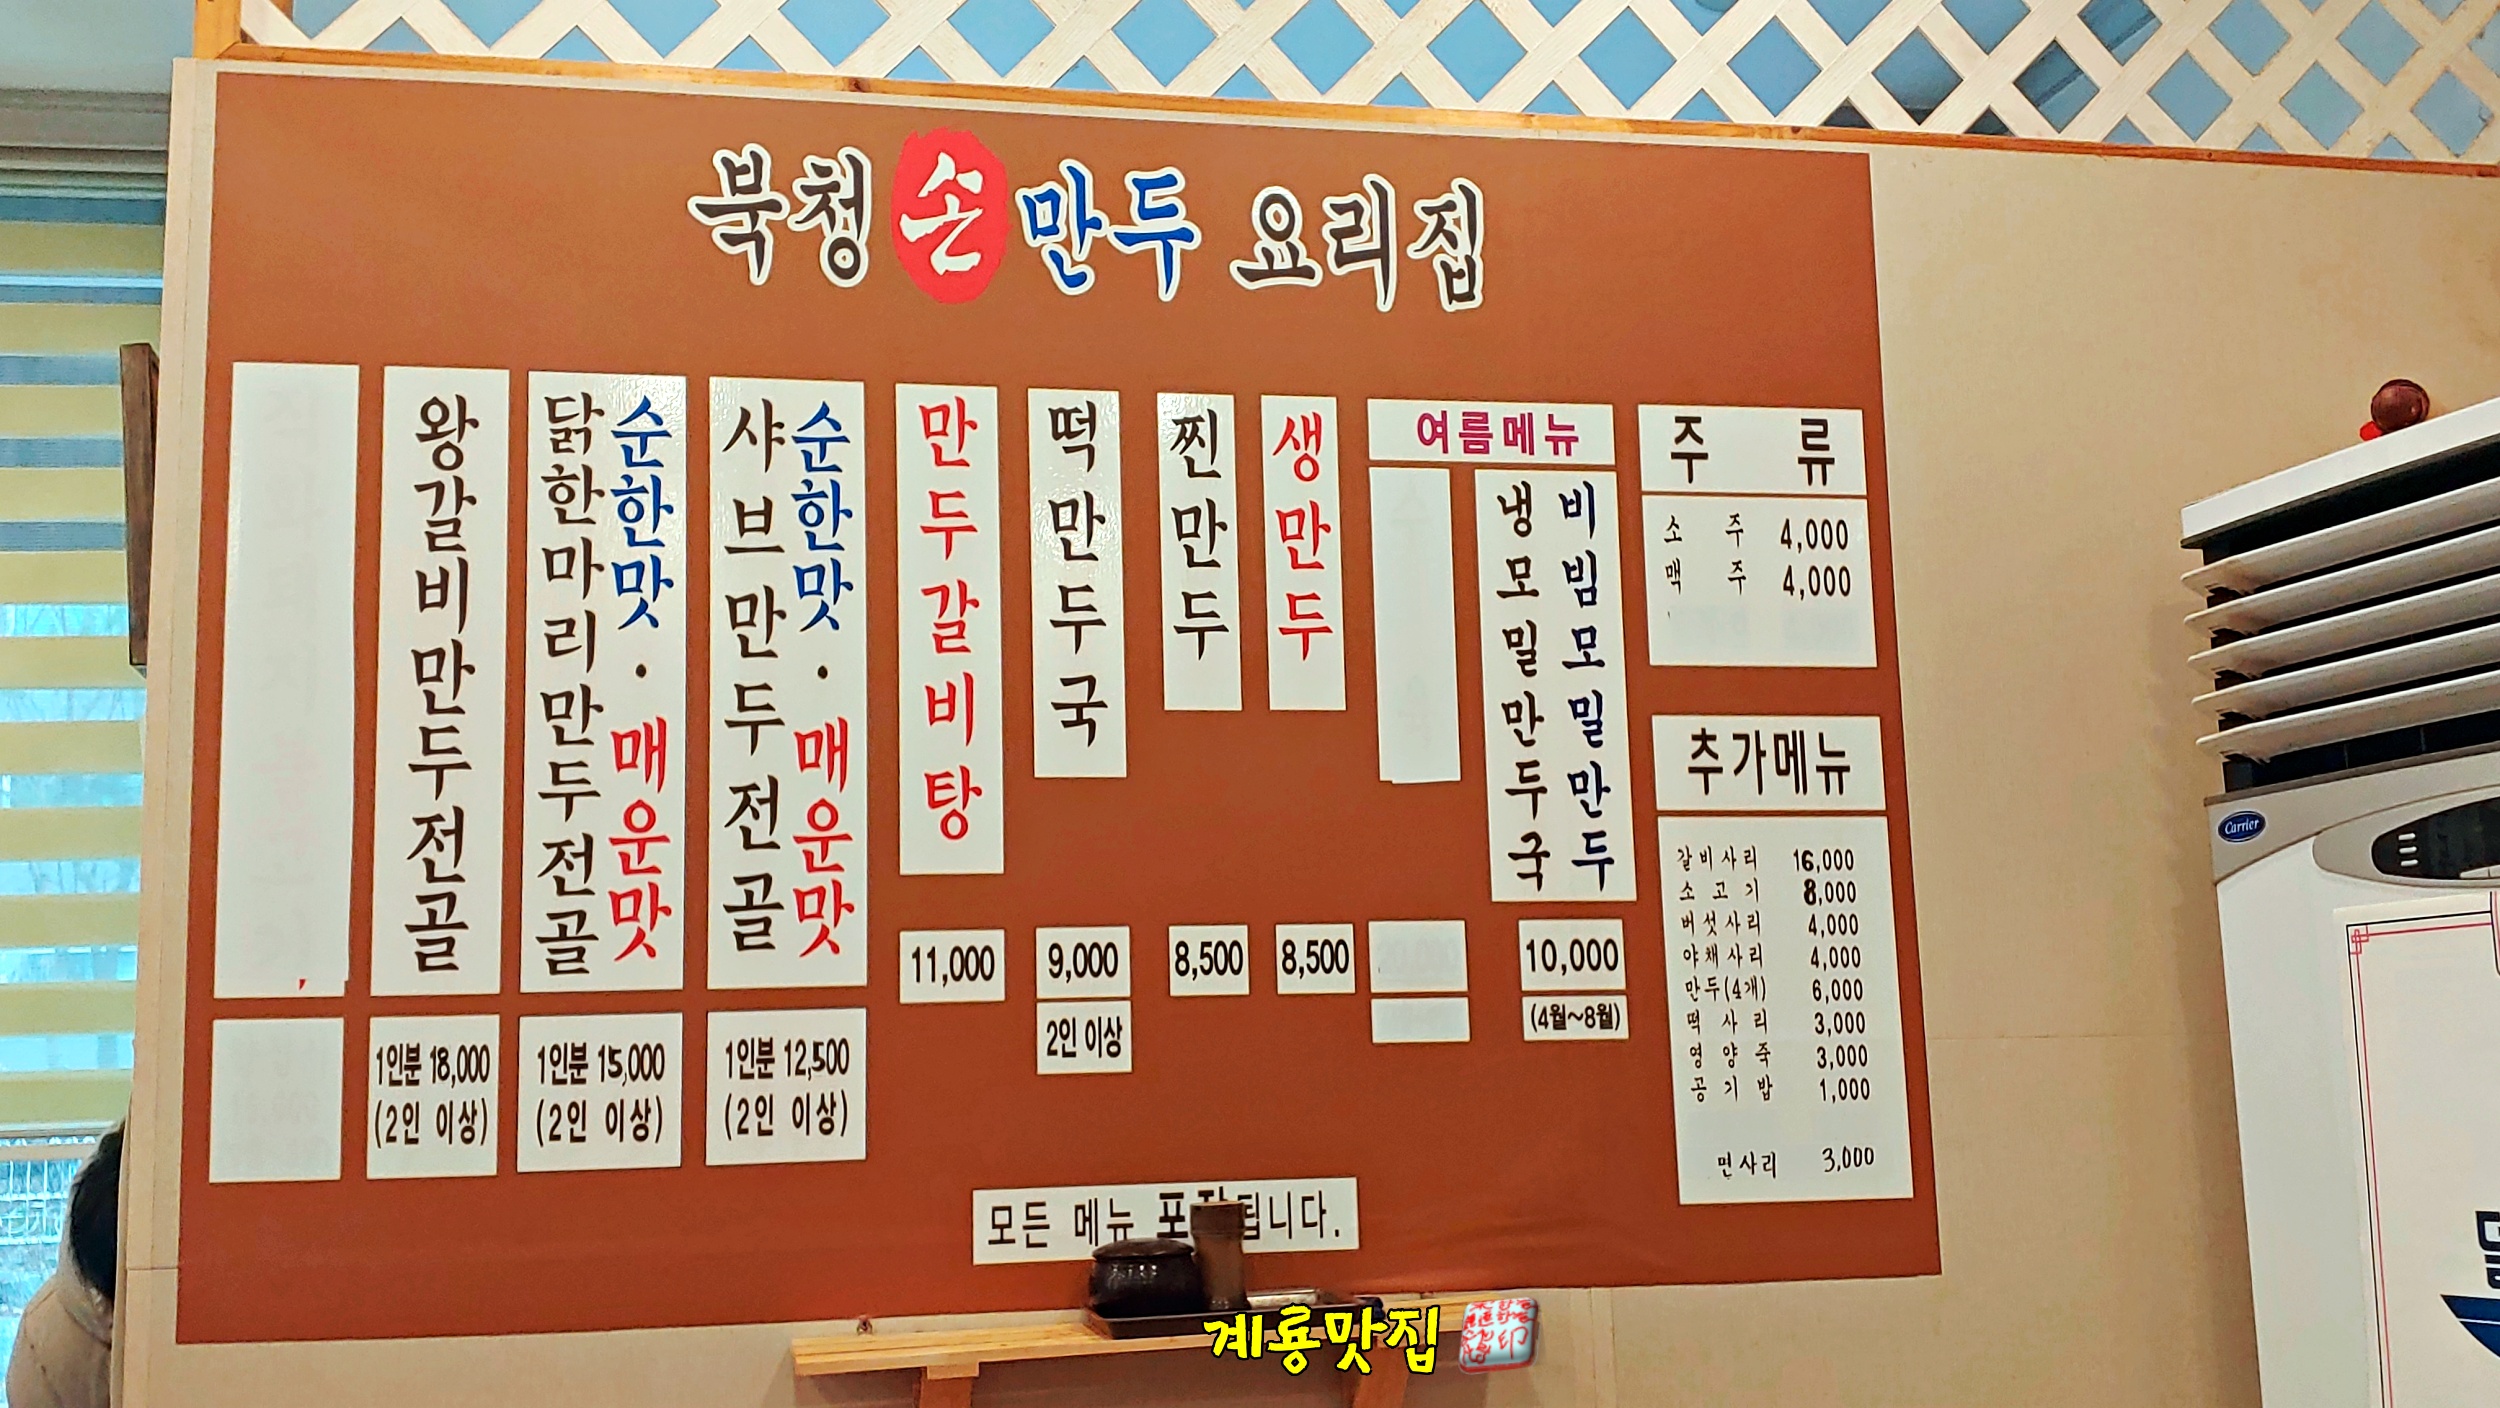 북청 손만두 요리집
왕갈비만두전골
1인분 18,000
(2인 이상)
닭한마리만두전골
순한맛 · 매운맛
1인분 15,000
(2인 이상)
샤브만두전골
순한맛 · 매운맛
1인분 12,500
(2인 이상)
만두갈비탕
11,000
떡만두국
9,000
2인 이상
찐만두
8,500
생만두
8,500
여름메뉴
냉모밀만두국
비빔모밀만두
10,000
(4월~8월)
주 류
소 주 4,000
맥 주 4,000
추가메뉴
갈비사리 16,000
소고기 8,000
버섯사리 4,000
야채사리 4,000
만두(4개) 6,000
떡사리 3,000
영양죽 3,000
공기밥 1,000
면사리 3,000
모든 메뉴 포장됩니다.
계룡맛집
Carrier